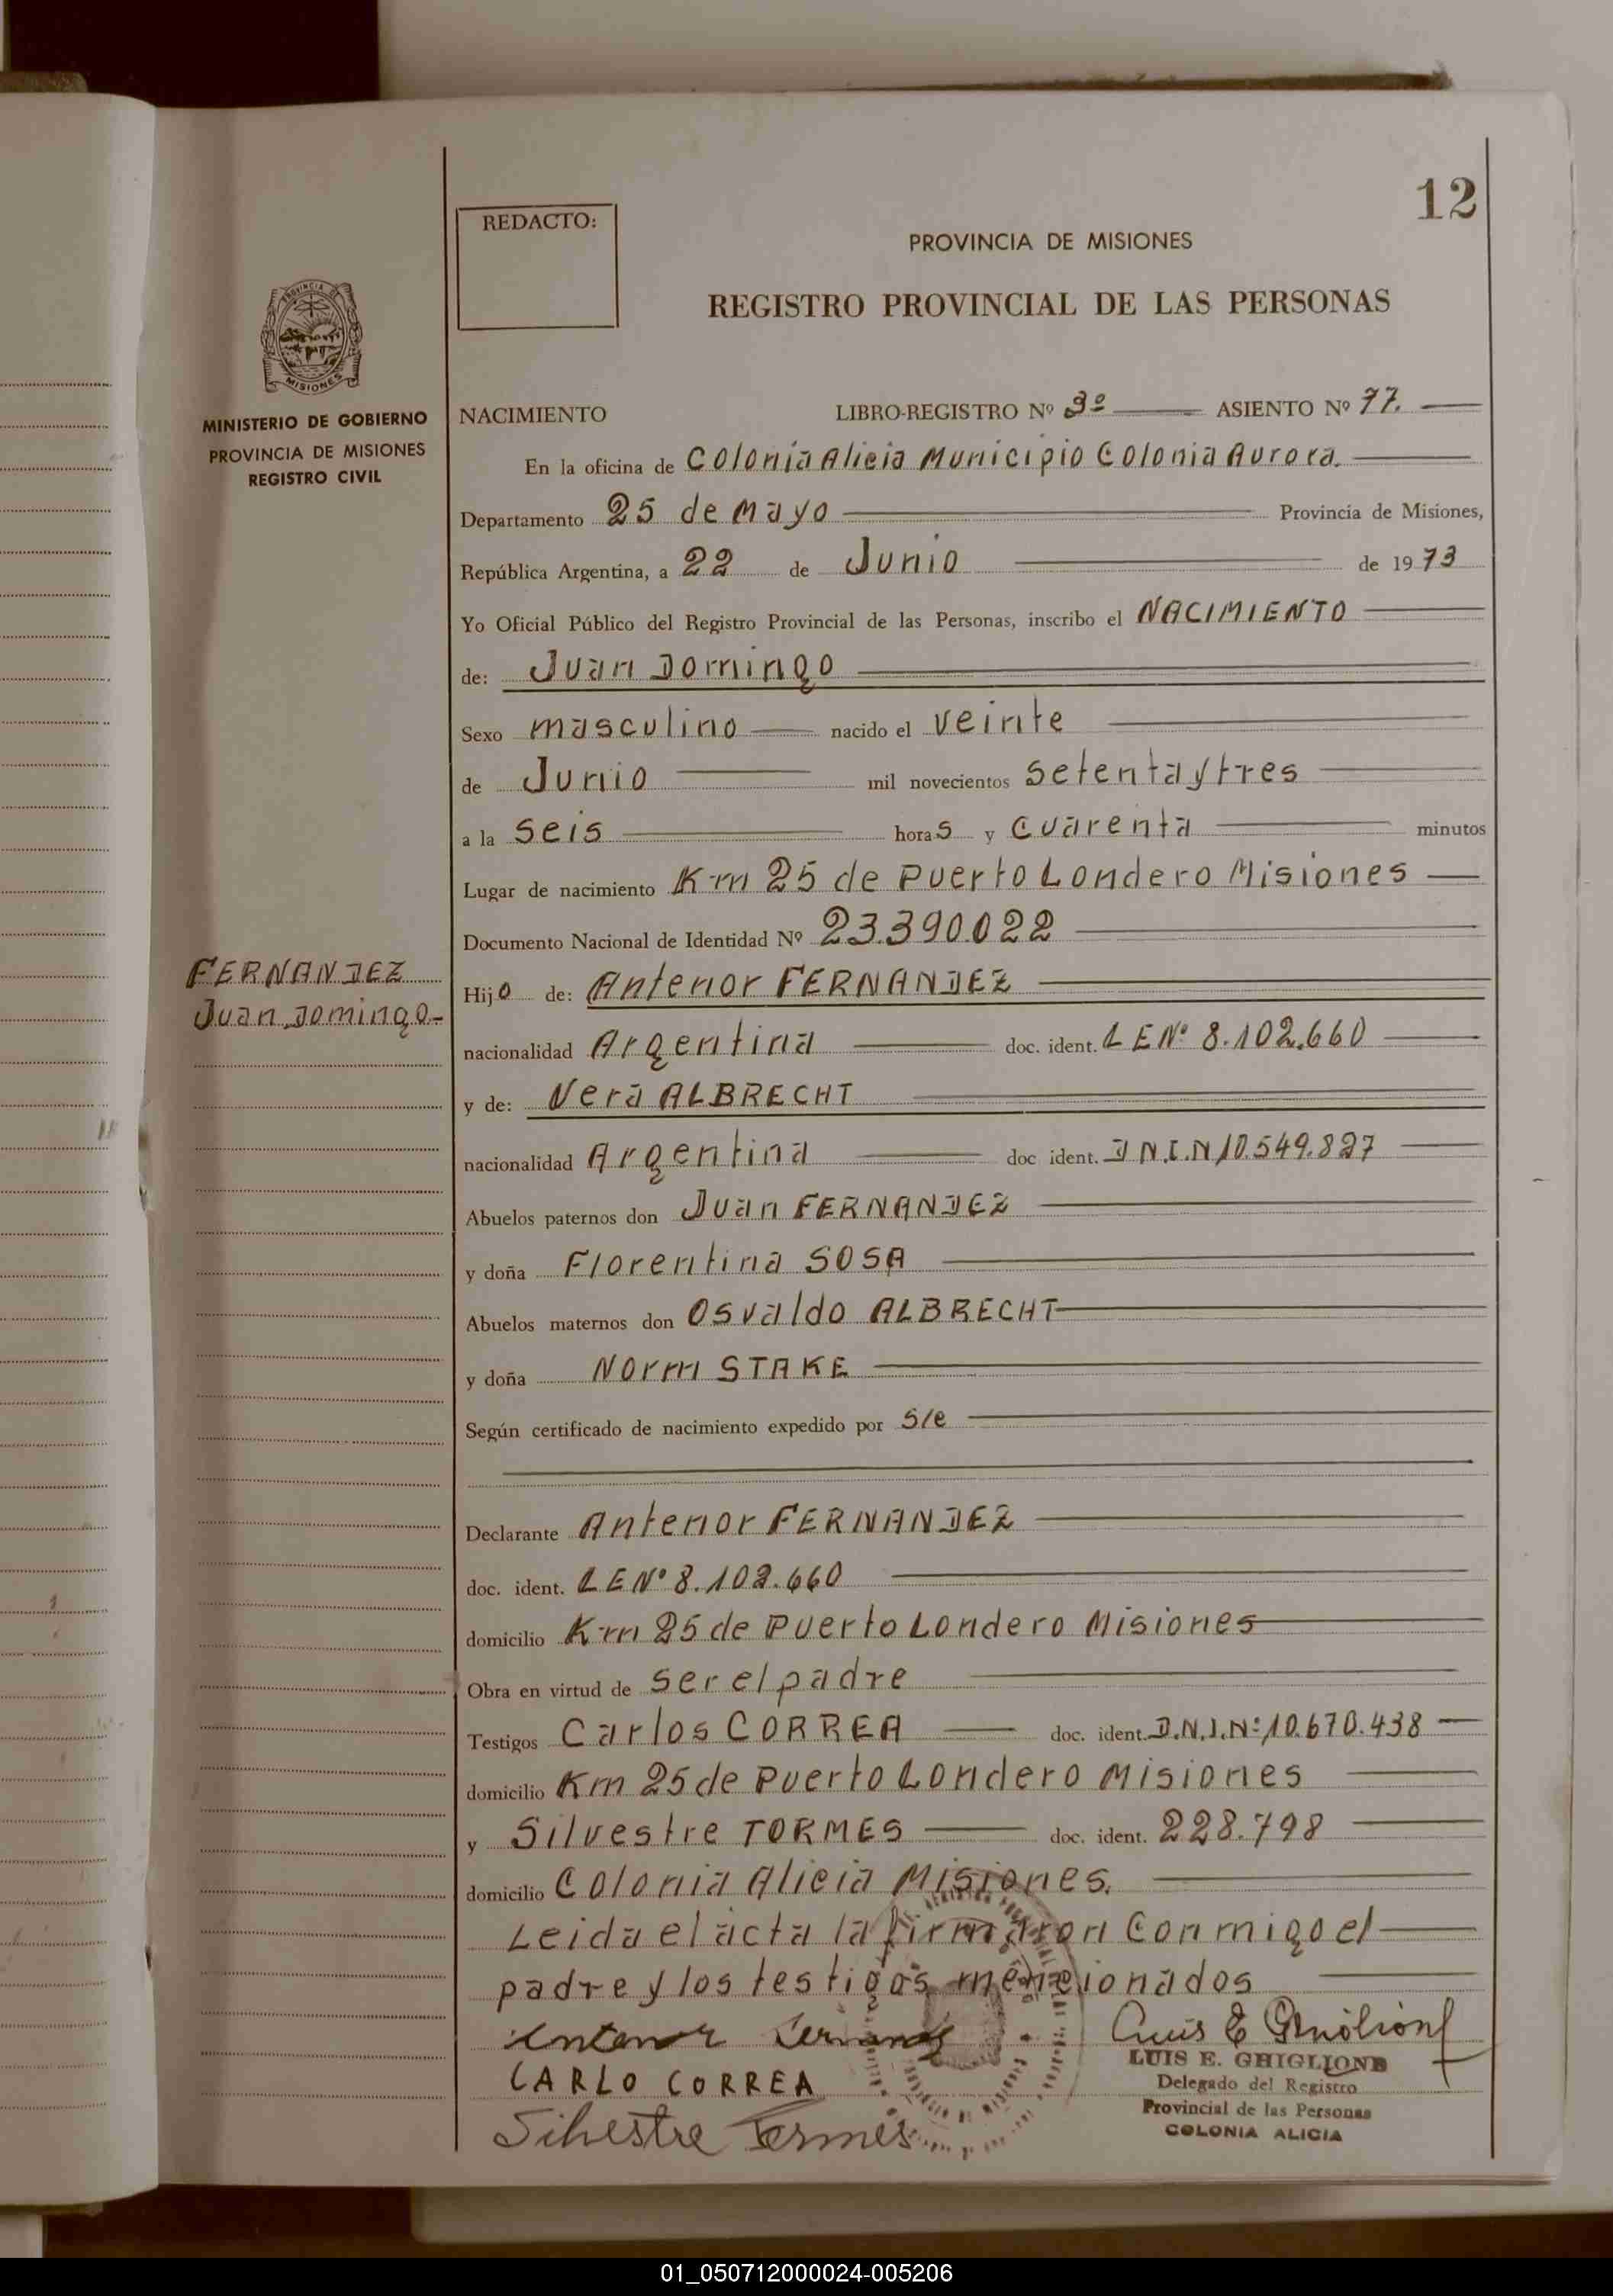 12
REDACTO:
PROVINCIA DE MISIONES
REGISTRO PROVINCIAL DE LAS PERSONAS
PROVINCIA DE
MISIONES
MINISTERIO DE GOBIERNO
PROVINCIA DE MISIONES
REGISTRO CIVIL
NACIMIENTO LIBRO-REGISTRO Nº 3º ASIENTO Nº 77.
En la oficina de Colonia Alicia Municipio Colonia Aurora.
Departamento 25 de Mayo Provincia de Misiones,
República Argentina, a 22 de Junio de 1973
Yo Oficial Público del Registro Provincial de las Personas, inscribo el NACIMIENTO
de: Juan Domingo
Sexo masculino nacido el veinte
de Junio mil novecientos setenta y tres
a la seis horas y cuarenta minutos
Lugar de nacimiento Km 25 de Puerto Londero Misiones
Documento Nacional de Identidad Nº 23.390.022
FERNANDEZ
Juan Domingo-
Hijo de: Antenor FERNANDEZ
nacionalidad Argentina doc. ident. L E Nº 8.102.660
y de: Vera ALBRECHT
nacionalidad Argentina doc ident. D N.I.N 10.549.827
Abuelos paternos don Juan FERNANDEZ
y doña Florentina SOSA
Abuelos maternos don Osvaldo ALBRECHT
y doña Norm STAKE
Según certificado de nacimiento expedido por s/e
Declarante Antenor FERNANDEZ
doc. ident. L E Nº 8.102.660
domicilio Km 25 de Puerto Londero Misiones
Obra en virtud de ser el padre
Testigos Carlos CORREA doc. ident. D.N.I.Nº 10.670.438
domicilio Km 25 de Puerto Londero Misiones
y Silvestre TORMES doc. ident. 228.798
domicilio Colonia Alicia Misiones.
Leida el acta la firmaron conmigo el
padre y los testigos mencionados
Antenor Fernandez
CARLO CORREA
Silvestre Tormes
LUIS E. GHIGLIONE
Delegado del Registro
Provincial de las Personas
COLONIA ALICIA
01_050712000024-005206